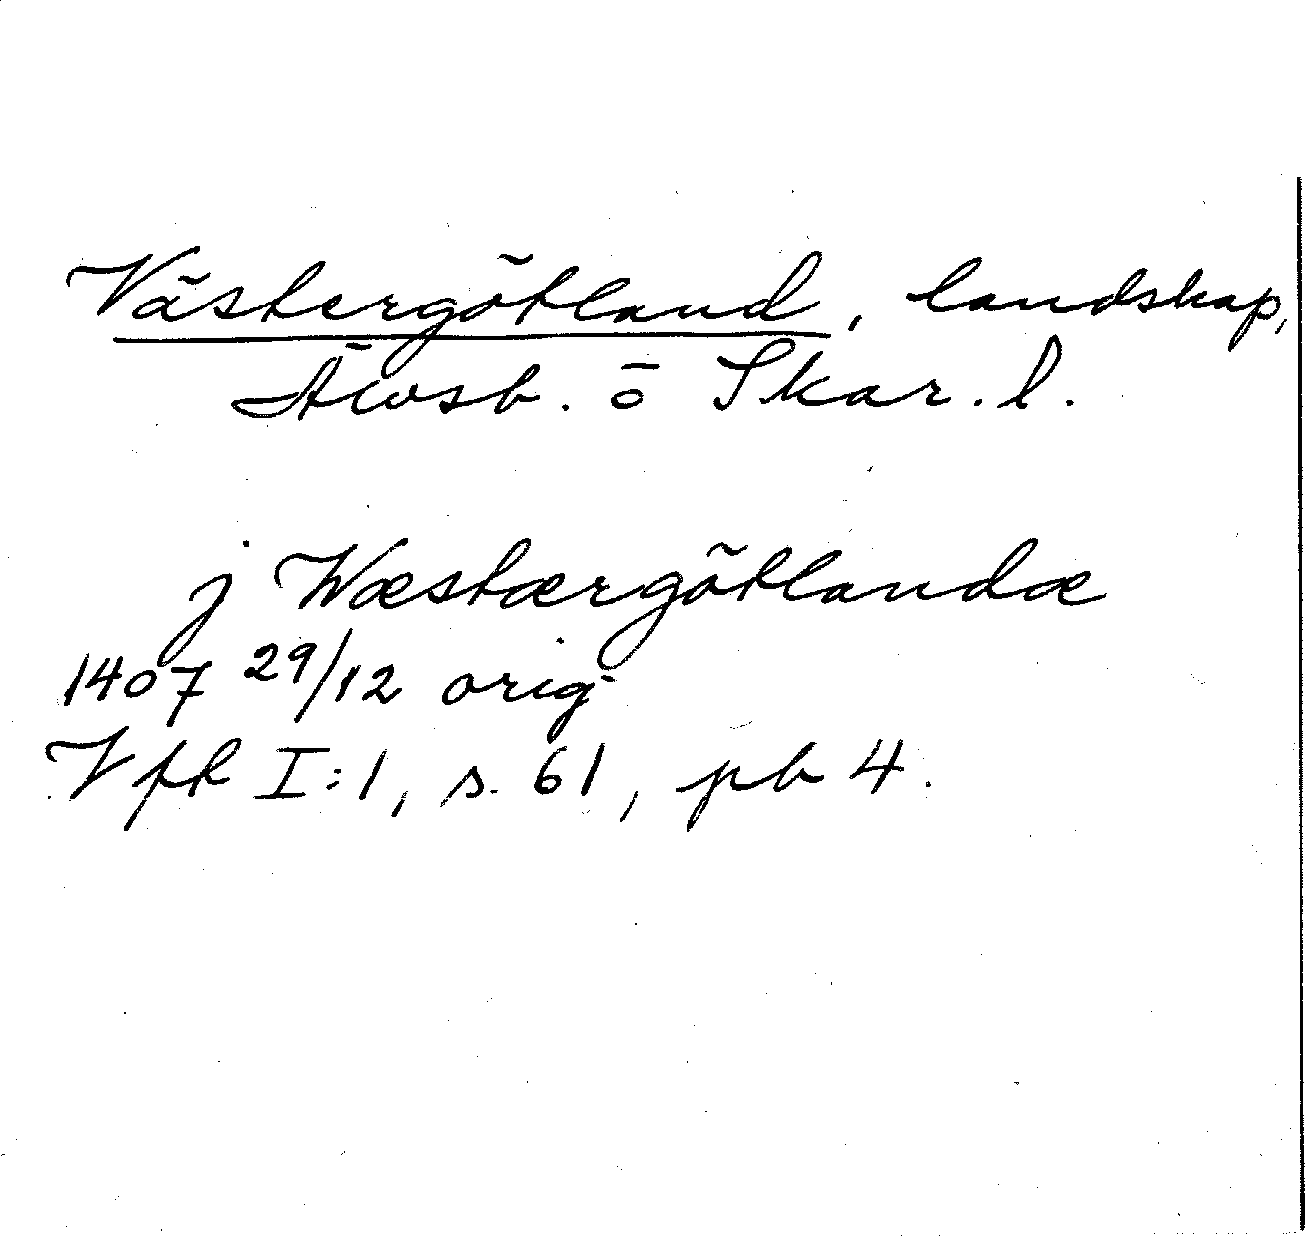 Västergötland, landskap,
Älvsb. o Skar. l.
j Wæstærgötlandæ
1407 29/12 orig
VfR I:1, s. 61, pb 4.